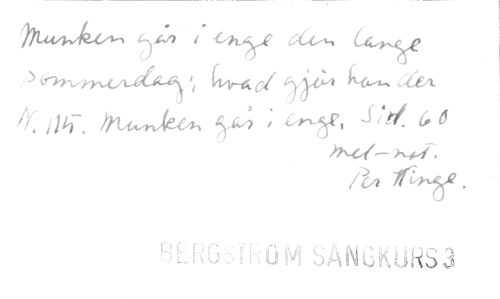 Munken går i enge den lange
sommerdag; hvad gjør han der
N. 115. Munken går i enge. Sid. 60
mel-not.
Per Winge.
BERGSTRÖM SÅNGKURS 3